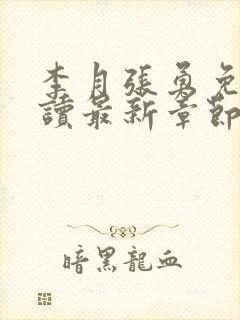 李月張勇免
讀最新章節
暗黑龍血